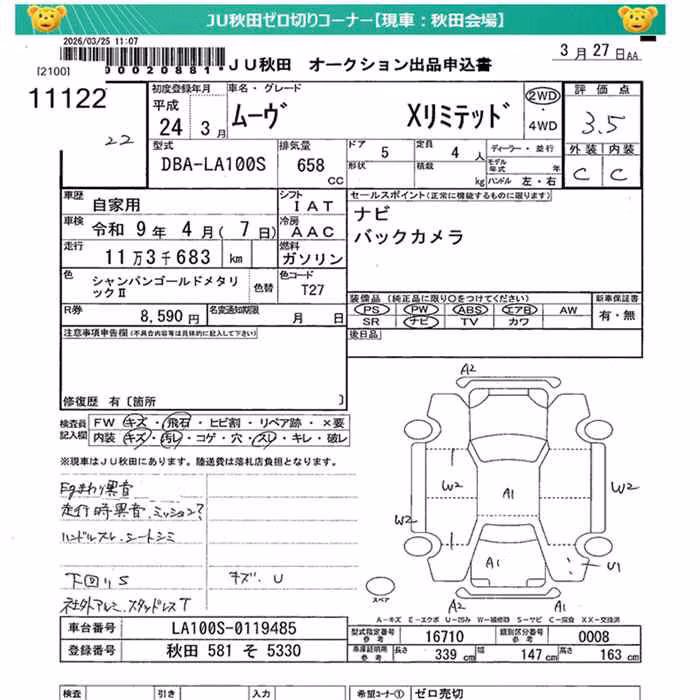 JU秋田ゼロ切りコーナー【現車：秋田会場】
2026/03/25 11:07
3月27日AA
[2100]
*0000020881* JU秋田 オークション出品申込書
11122
22
初度登録年月
平成
24年 3月
車名・グレード
ムーヴ Xリミテッド
2WD
・
4WD
評価点
3.5
外装 内装
C C
型式
DBA-LA100S
排気量
658
CC
ドア 5
形状
定員 4人
積載 kg
ディーラー・並行
モデル年式 年
ハンドル 左・右
車歴 自家用
シフト IAT
車検 令和 9年 4月( 7日)
冷房 AAC
走行 11万3千683 km
燃料 ガソリン
色 シャンパンゴールドメタリックⅡ
色替
色コード T27
R券 8,590円
名変通知期限 月 日
セールスポイント(正常に機能するものに限ります)
ナビ
バックカメラ
装備品(純正品に限り○をつけてください)
PS PW ABS エアB AW
SR ナビ TV カワ
新車保証書
有・無
後日品
注意事項申告欄(不具合内容等は具体的に記入して下さい)
修復歴 有〔箇所 〕
検査員記入欄
FW キズ・飛石・ヒビ割・リペア跡・×要
内装 キズ・汚レ・コゲ・穴・スレ・キレ・破レ
※現車はJU秋田にあります。陸送費は落札店負担となります。
Egまわり異音
走行時異音.ミッション?
ハンドルスレ.シートシミ
下回りS
キズ.U
社外アルミ.スタッドレスT
A2
W2
W2
W2
A1
A1
U1
A2
A1
スペア
A-キズ E-エクボ U-凹み W-補修跡 S-サビ C-腐食 XX-交換済
車台番号 LA100S-0119485
登録番号 秋田 581 そ 5330
型式指定番号参考 16710
類別区分番号参考 0008
車庫証明用参考 長さ 339cm 幅 147cm 高さ 163cm
検査
引き
入力
希望コーナー① ゼロ売切